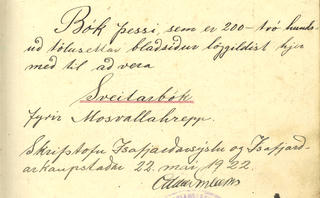 Bók þessi, sem er 200 - tvö hund-
uð tölusettar blaðsíður löggildist hjer
með til að vera
Sveitarbók
fyrir Mosvallahrepp.
Skrifstofu Ísafjarðarsýslu og Ísafjarð-
arkaupstaðar 22. maí 1922.